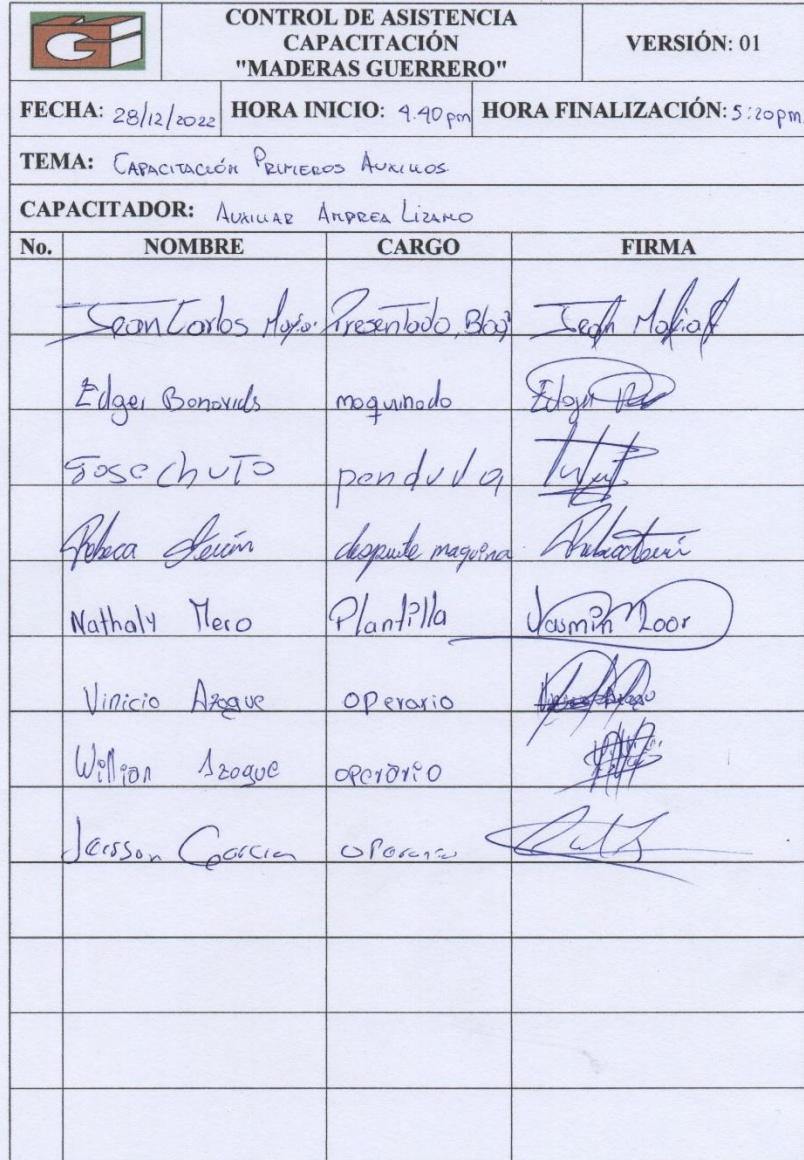 CONTROL DE ASISTENCIA
CAPACITACIÓN
"MADERAS GUERRERO"
VERSIÓN: 01
FECHA: 28/12/2022 HORA INICIO: 4.40 pm HORA FINALIZACIÓN: 5:20 pm
TEMA: CAPACITACIÓN PRIMEROS AUXILIOS
CAPACITADOR: AUXILIAR ANDREA LIZANO
No. NOMBRE CARGO FIRMA
Jean Carlos Jean
Edger moquinodo Edgar
Jose chuTo pendula
Rebeca maquina
Nathaly Mero Plantilla Jasmin Loor
Vinicio Azogue operario
Willian Azogue operario
Jersson Garcia operario